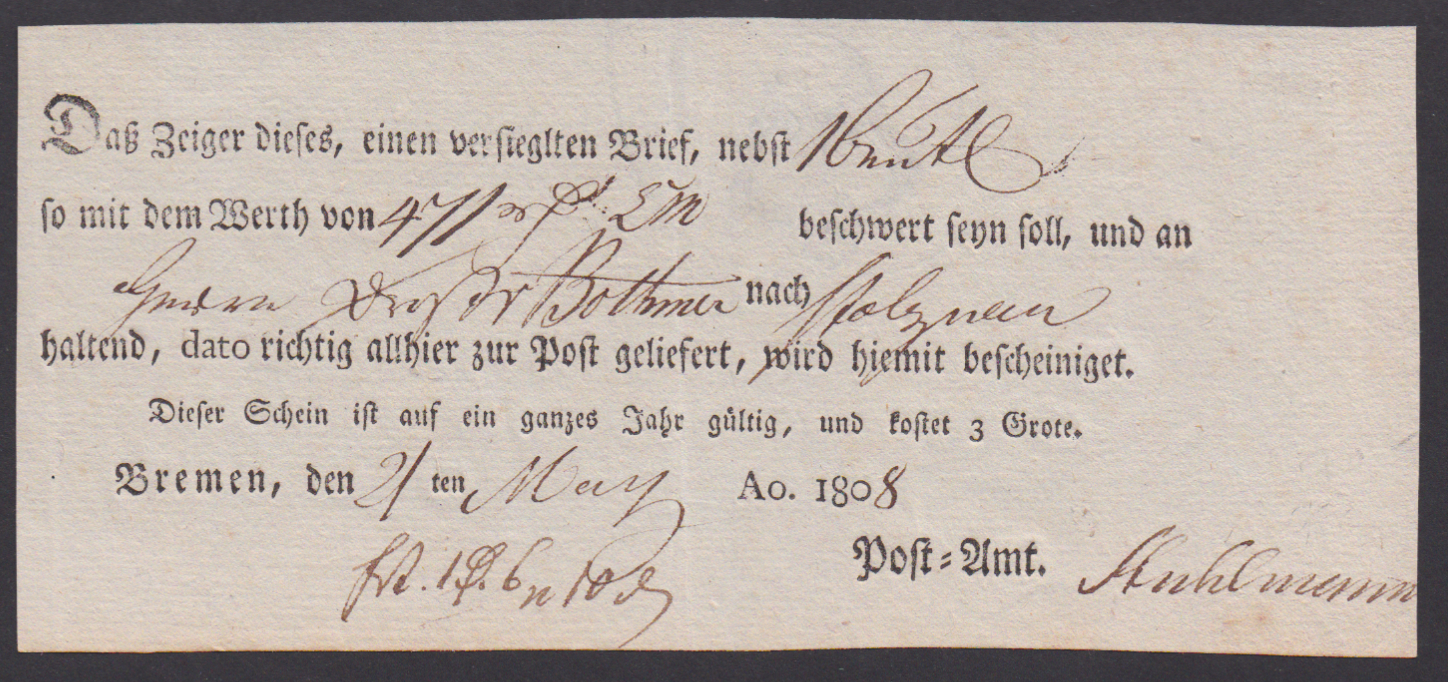 Daß Zeiger dieses, einen versieglten Brief, nebst 1 Beutel
so mit dem Werth von 471 beschwert seyn soll, und an
Herrn Droste Bothmer nach Stolznau
haltend, dato richtig allhier zur Post geliefert, wird hiemit bescheiniget.
Dieser Schein ist auf ein ganzes Jahr gültig, und kostet 3 Grote.
Bremen, den 21 ten May Ao. 1808
Post-Amt. Stuhlmann